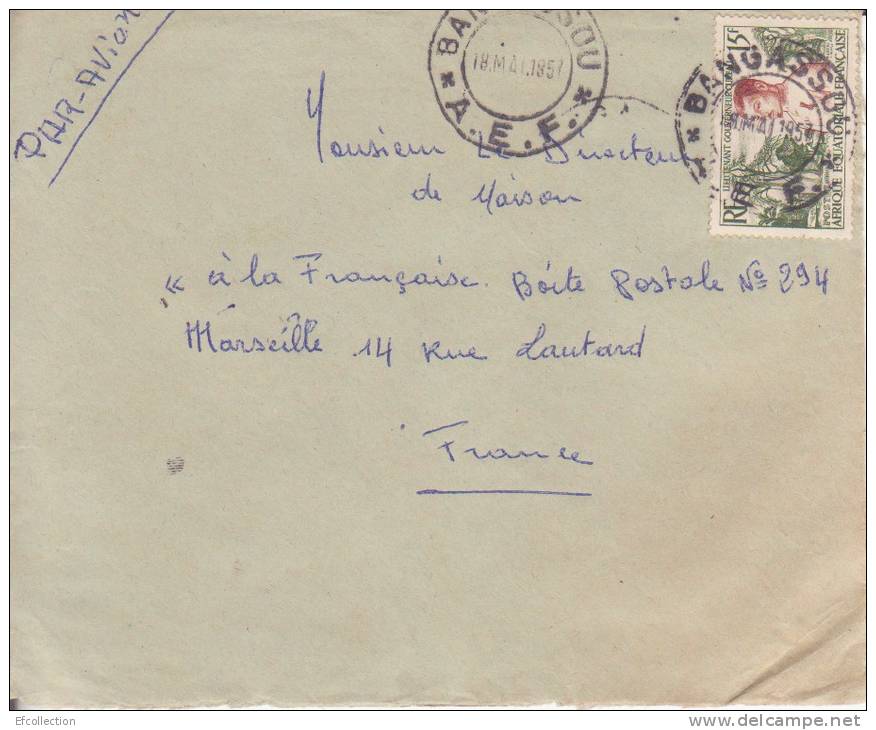 PAR-AVion
BANGASSOU
18.MAI.1957
* A.E.F. *
BANGASSOU
18.MAI.1957
* A. E. F. *
15F
LIEUTENANT GOUVERNEUR CUREAU
RF
POSTES
AFRIQUE EQUATORIALE FRANÇAISE
Monsieur Le Directeur
de Maison
« à la Française. Boîte Postale Nº 294
Marseille 14 Rue Lautard
France
Efcollection
www.delcampe.net